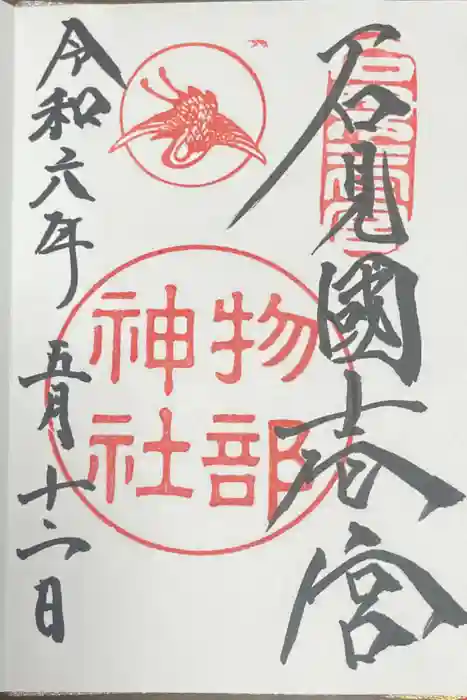 石見國壱宮
物部
神社
令和六年五月十二日